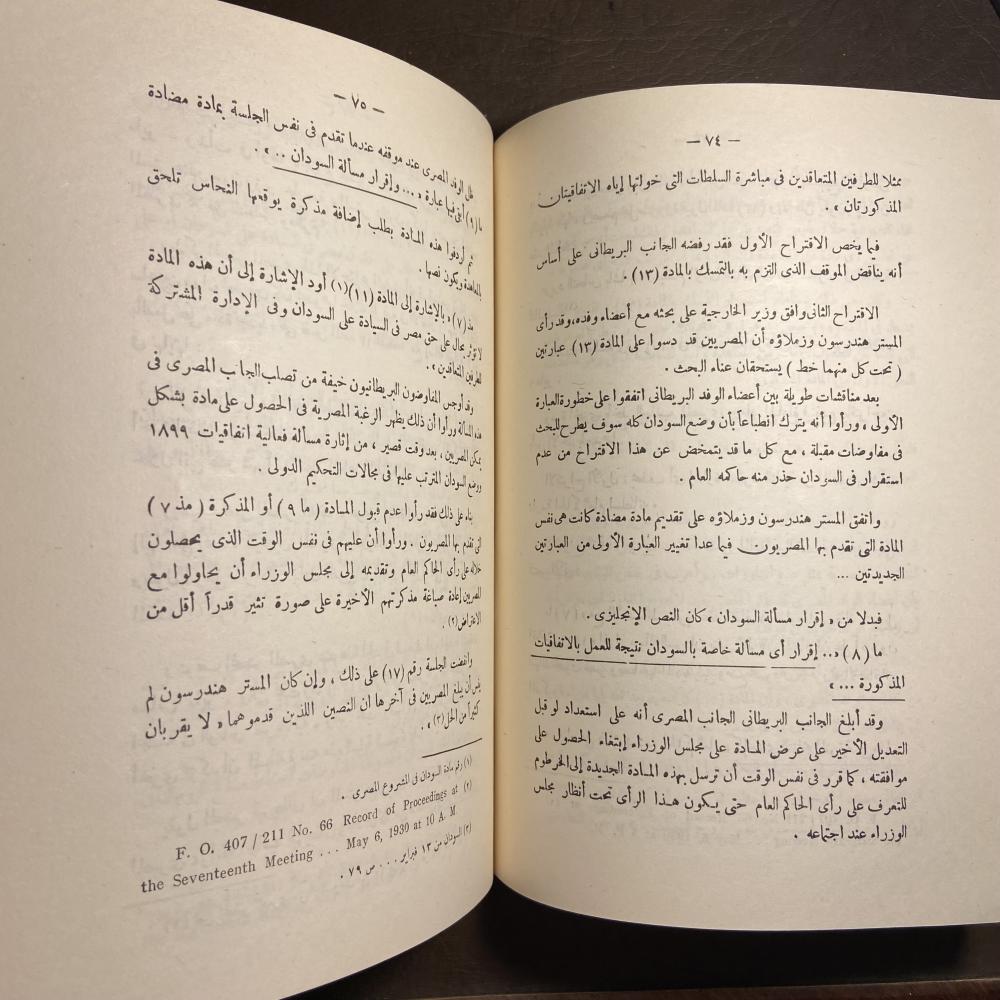 — ٧٤ —
ممثلا للطرفين المتعاقدين فى مباشرة السلطات التى خولتها إياه الاتفاقيتان
المذكورتان » .
فيما يخص الاقتراح الأول فقد رفضه الجانب البريطانى على أساس
أنه يناقض الموقف الذى التزم به بالتمسك بالمادة (١٣) .
الاقتراح الثانى وافق وزير الخارجية على بحثه مع أعضاء وفده، وقد رأى
المستر هندرسون وزملاؤه أن المصريين قد دسوا على المادة (١٣) عبارتين
( تحت كل منهما خط ) يستحقان عناء البحث .
بعد مناقشات طويلة بين أعضاء الوفد البريطانى اتفقوا على خطورة العبارة
الأولى ، ورأوا أنه يترك انطباعاً بأن وضع السودان كله سوف يطرح للبحث
فى مفاوضات مقبلة ، مع كل ما قد يتمخض عن هذا الاقتراح من عدم
استقرار فى السودان حذر منه حاكمه العام .
واتفق المستر هندرسون وزملاؤه على تقديم مادة مضادة كانت هى نفس
المادة التى تقدم بها المصريون فيما عدا تغيير العبارة الأولى من العبارتين
الجديدتين ...
فبدلا من « إقرار مسألة السودان » كان النص الإنجليزى .
ما (٨) «.. إقرار أى مسألة خاصة بالسودان نتيجة للعمل بالاتفاقيات
المذكورة ... »
وقد أبلغ الجانب البريطانى الجانب المصرى أنه على استعداد لو قبل
التعديل الأخير على عرض المادة على مجلس الوزراء إبتغاء الحصول على
موافقته ، كما قرر فى نفس الوقت أن ترسل بهذه المادة الجديدة إلى الخرطوم
للتعرف على رأى الحاكم العام حتى يكون هذا الرأى تحت أنظار مجلس
الوزراء عند اجتماعه .
— ٧٥ —
ظل الوفد المصرى عند موقفه عندما تقدم فى نفس الجلسة بمادة مضادة
ما (٩) أبقى فيها عبارة « ... وإقرار مسألة السودان .. » .
ثم أردفوا هذه المادة بطلب إضافة مذكرة يوقعها النحاس تلحق
بالمعاهدة ويكون نصها .
مذ (٧) « بالإشارة إلى المادة (١١)(١) أود الإشارة إلى أن هذه المادة
لا تؤثر بحال على حق مصر فى السيادة على السودان وفى الإدارة المشتركة
للطرفين المتعاقدين » .
وقد أوجس المفاوضون البريطانيون خيفة من تصلب الجانب المصرى فى
هذه المسألة ورأوا أن ذلك يظهر الرغبة المصرية فى الحصول على مادة بشكل
يمكن المصريين ، بعد وقت قصير ، من إثارة مسألة فعالية اتفاقيات ١٨٩٩
ووضع السودان المترتب عليها فى مجالات التحكيم الدولى .
بناء على ذلك فقد رأوا عدم قبول المادة ( ما ٩ ) أو المذكرة ( مذ ٧ )
التى تقدم بها المصريون . ورأوا أن عليهم فى نفس الوقت الذى يحصلون
خلاله على رأى الحاكم العام وتقديمه إلى مجلس الوزراء أن يحاولوا مع
المصريين إعادة صياغة مذكرتهم الأخيرة على صورة تثير قدراً أقل من
الاعتراض (٢) .
وانفضت الجلسة رقم (١٧) على ذلك ، وإن كان المستر هندرسون لم
ينس أن يبلغ المصريين فى آخرها ان النصين اللذين قدموهما « لا يقربان
كثيراً من الحل (٣) » .
(١) رقم مادة السودان فى المشروع المصرى .
(٢) F. O. 407 / 211 No. 66 Record of Proceedings at
the Seventeenth Meeting . . . May 6, 1930 at 10 A. M.
(٣) السودان من ١٣ فبراير . . . ص ٧٩ .